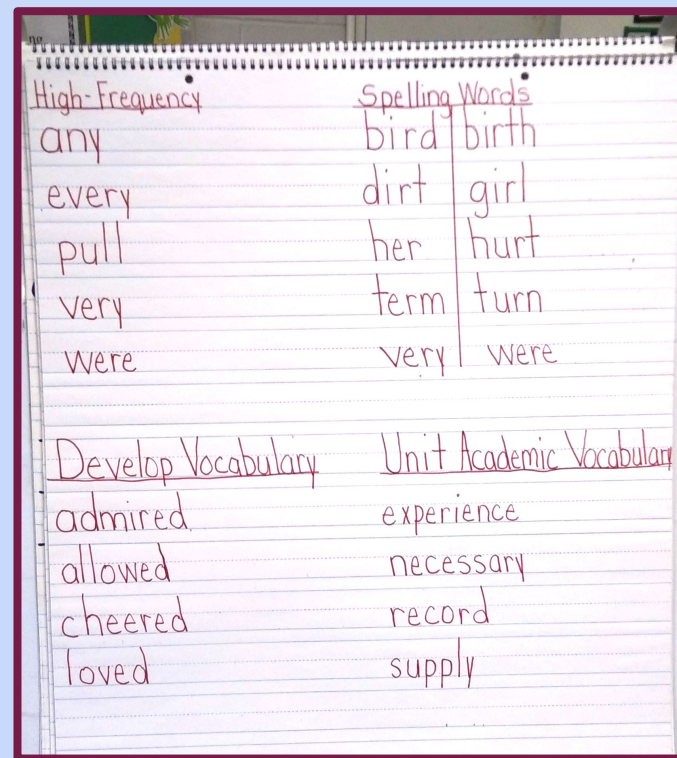 no
High-Frequency
any
every
pull
very
were
Spelling Words
bird birth
dirt girl
her hurt
term turn
very were
Develop Vocabulary
admired
allowed
cheered
loved
Unit Academic Vocabulary
experience
necessary
record
supply